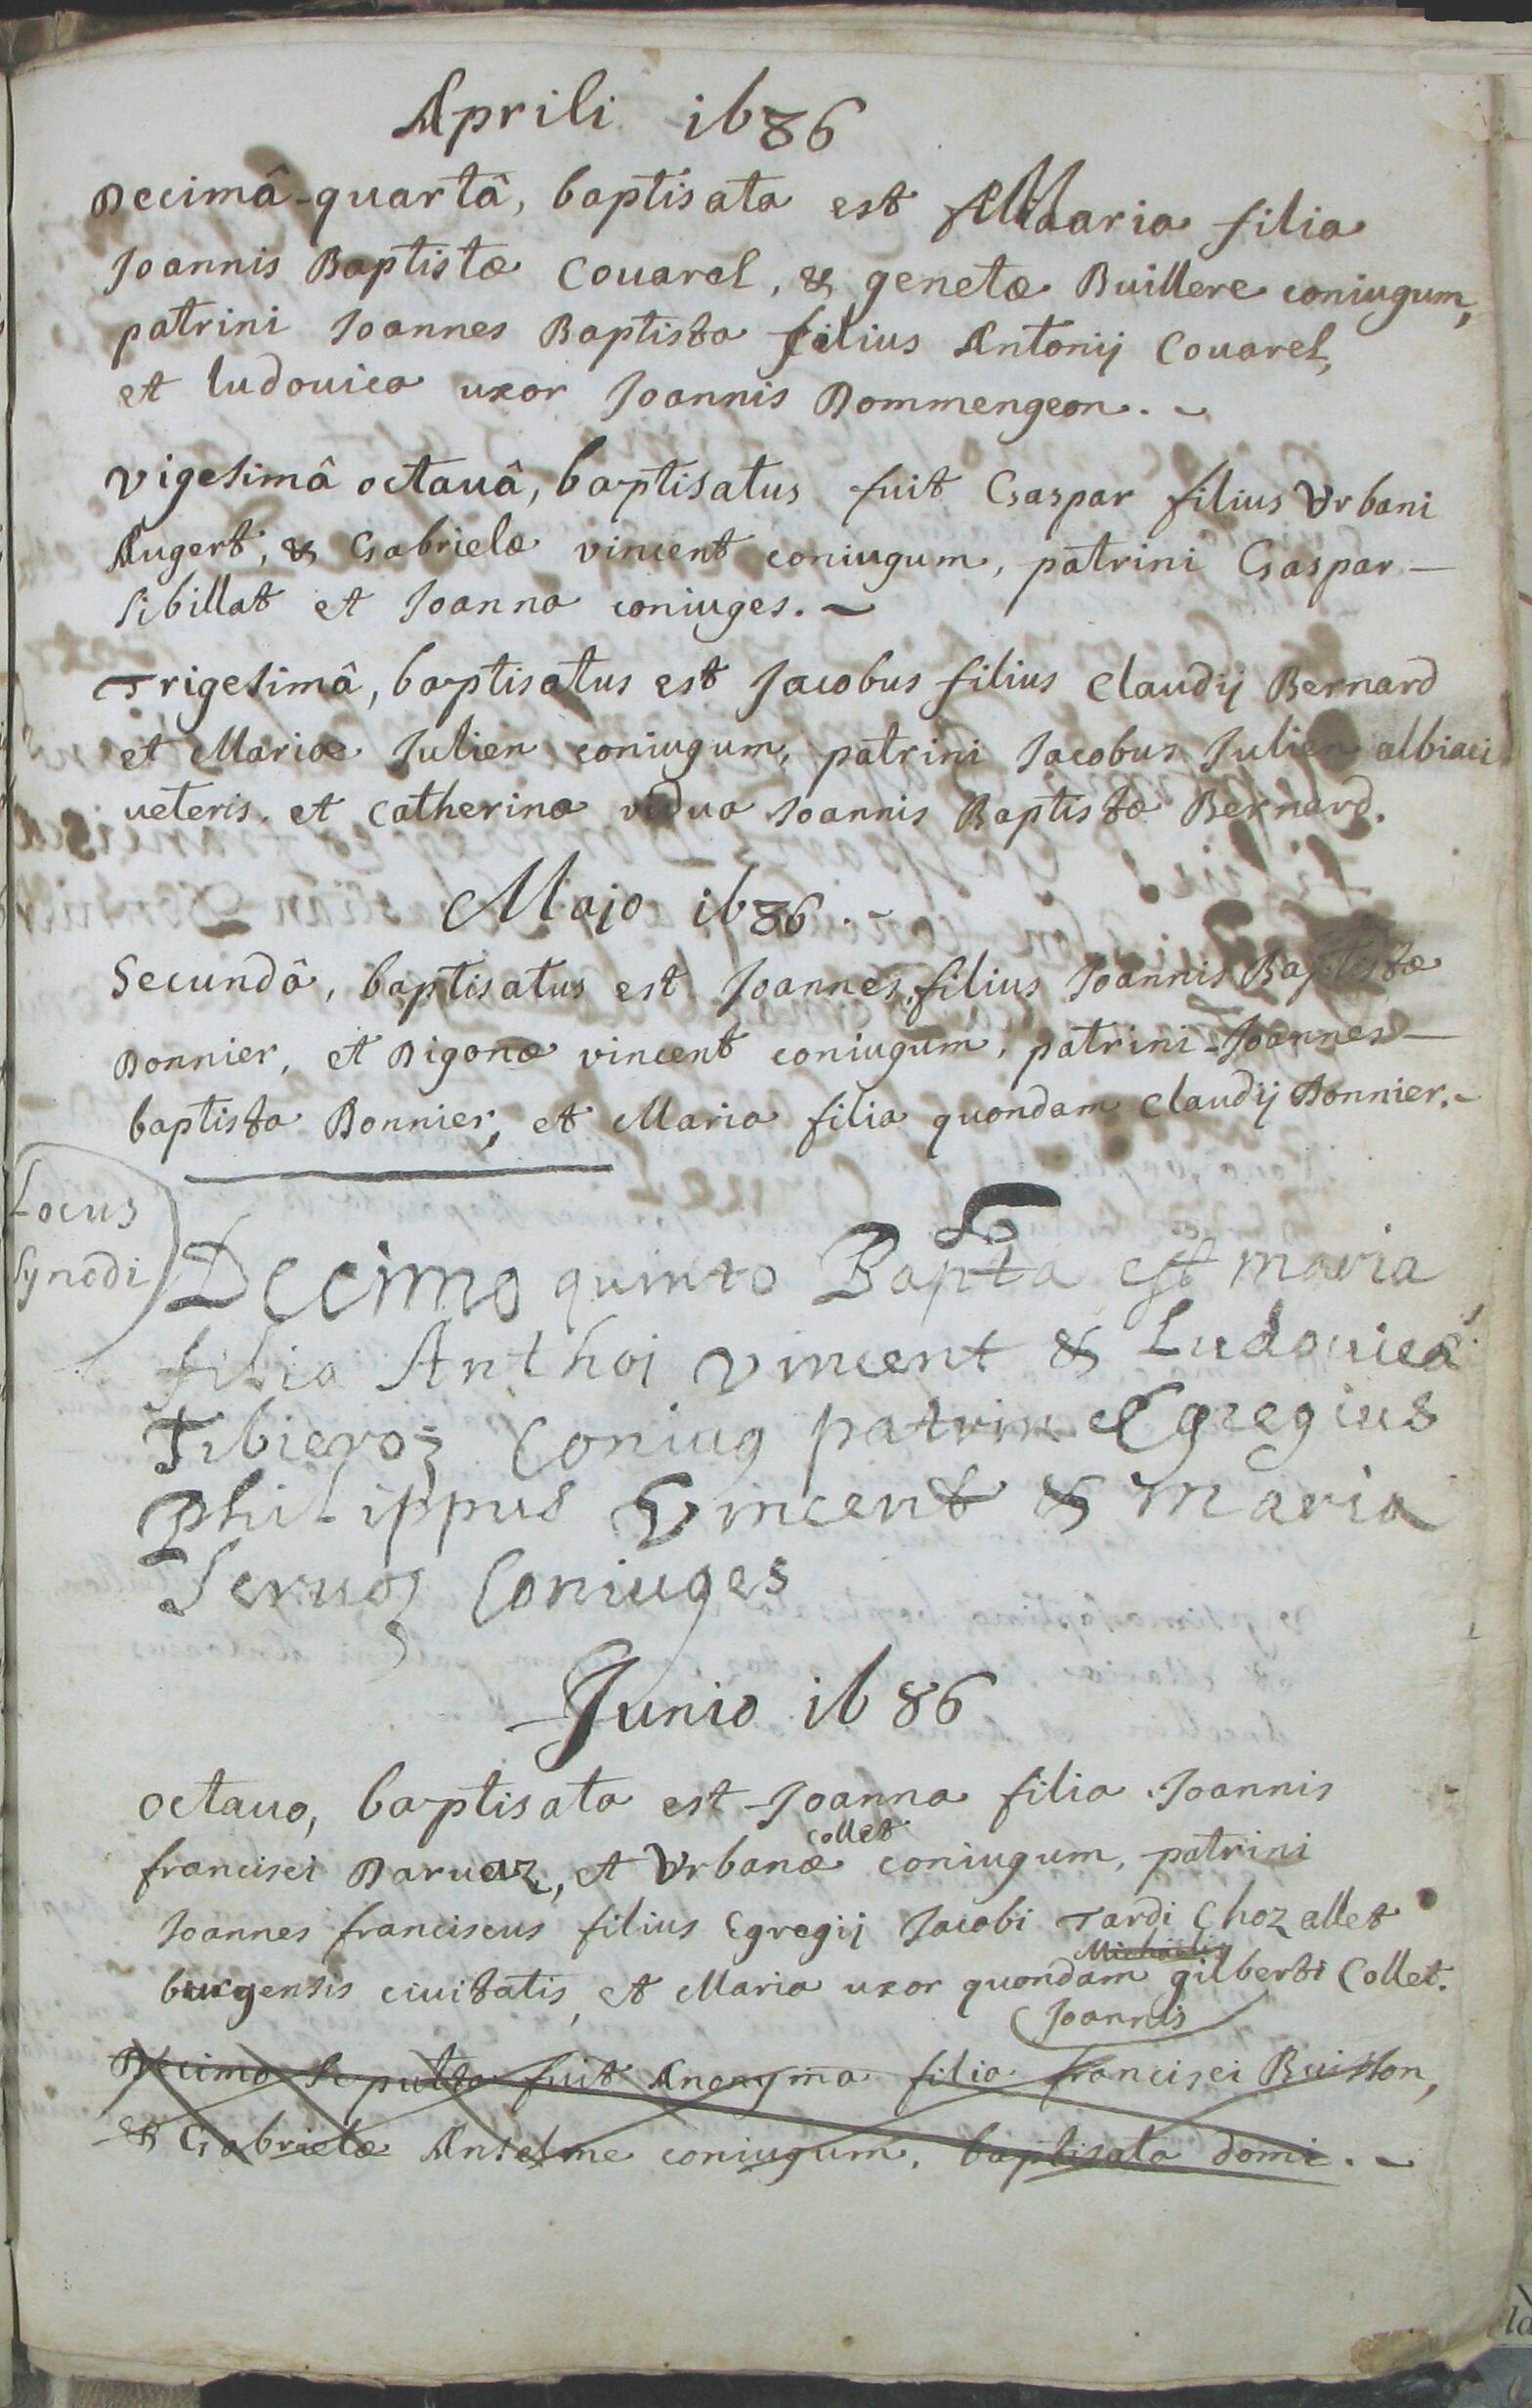 Aprili 1686
Decimâ-quartâ, baptisata est Maria filia
Joannis Baptistæ Couarel, & genetæ Buillere coniugum,
patrini Joannes Baptista filius Antonij Couarel,
et ludouica uxor Joannis Dommengeon.
vigesimâ octauâ, baptisatus fuit Gaspar filius Vrbani
Augert, & Gabrielæ vincent coniugum, patrini Gaspar
Sibillat et Joanna coniuges.
Trigesimâ, baptisatus est Jacobus filius Claudij Bernard
et Mariæ Julien coniugum, patrini Jacobus Julien albiaci
ueteris, et Catherina vidua Joannis Baptistæ Bernard.
Majo 1686.
Secundâ, baptisatus est Joannes, filius Joannis Baptistæ
Bonnier, et Digonæ vincent coniugum, patrini Joannes
baptista Bonnier, et Maria filia quondam Claudij Bonnier.
Locus
Synodi
Decimo quinto Bapta est maria
filia Anthoj vincent & Ludouicæ
Tibieroz Coniug patrin Egregius
philippus Vincent & maria
Seruoz Coniuges
Junio 1686
octauo, baptisata est Joanna filia Joannis
collet
francisci Daruez, et Vrbanæ coniugum, patrini
Joannes franciscus filius Egregij Jacobi Tardi Chozallet
Michaelis
burgensis ciuitatis, et Maria uxor quondam gilberti Collet.
Joannis
Decimo Sepulta fuit Anonyma filia francisci Buisson,
& Gabrielæ Anselme coniugum, baptisata domi.